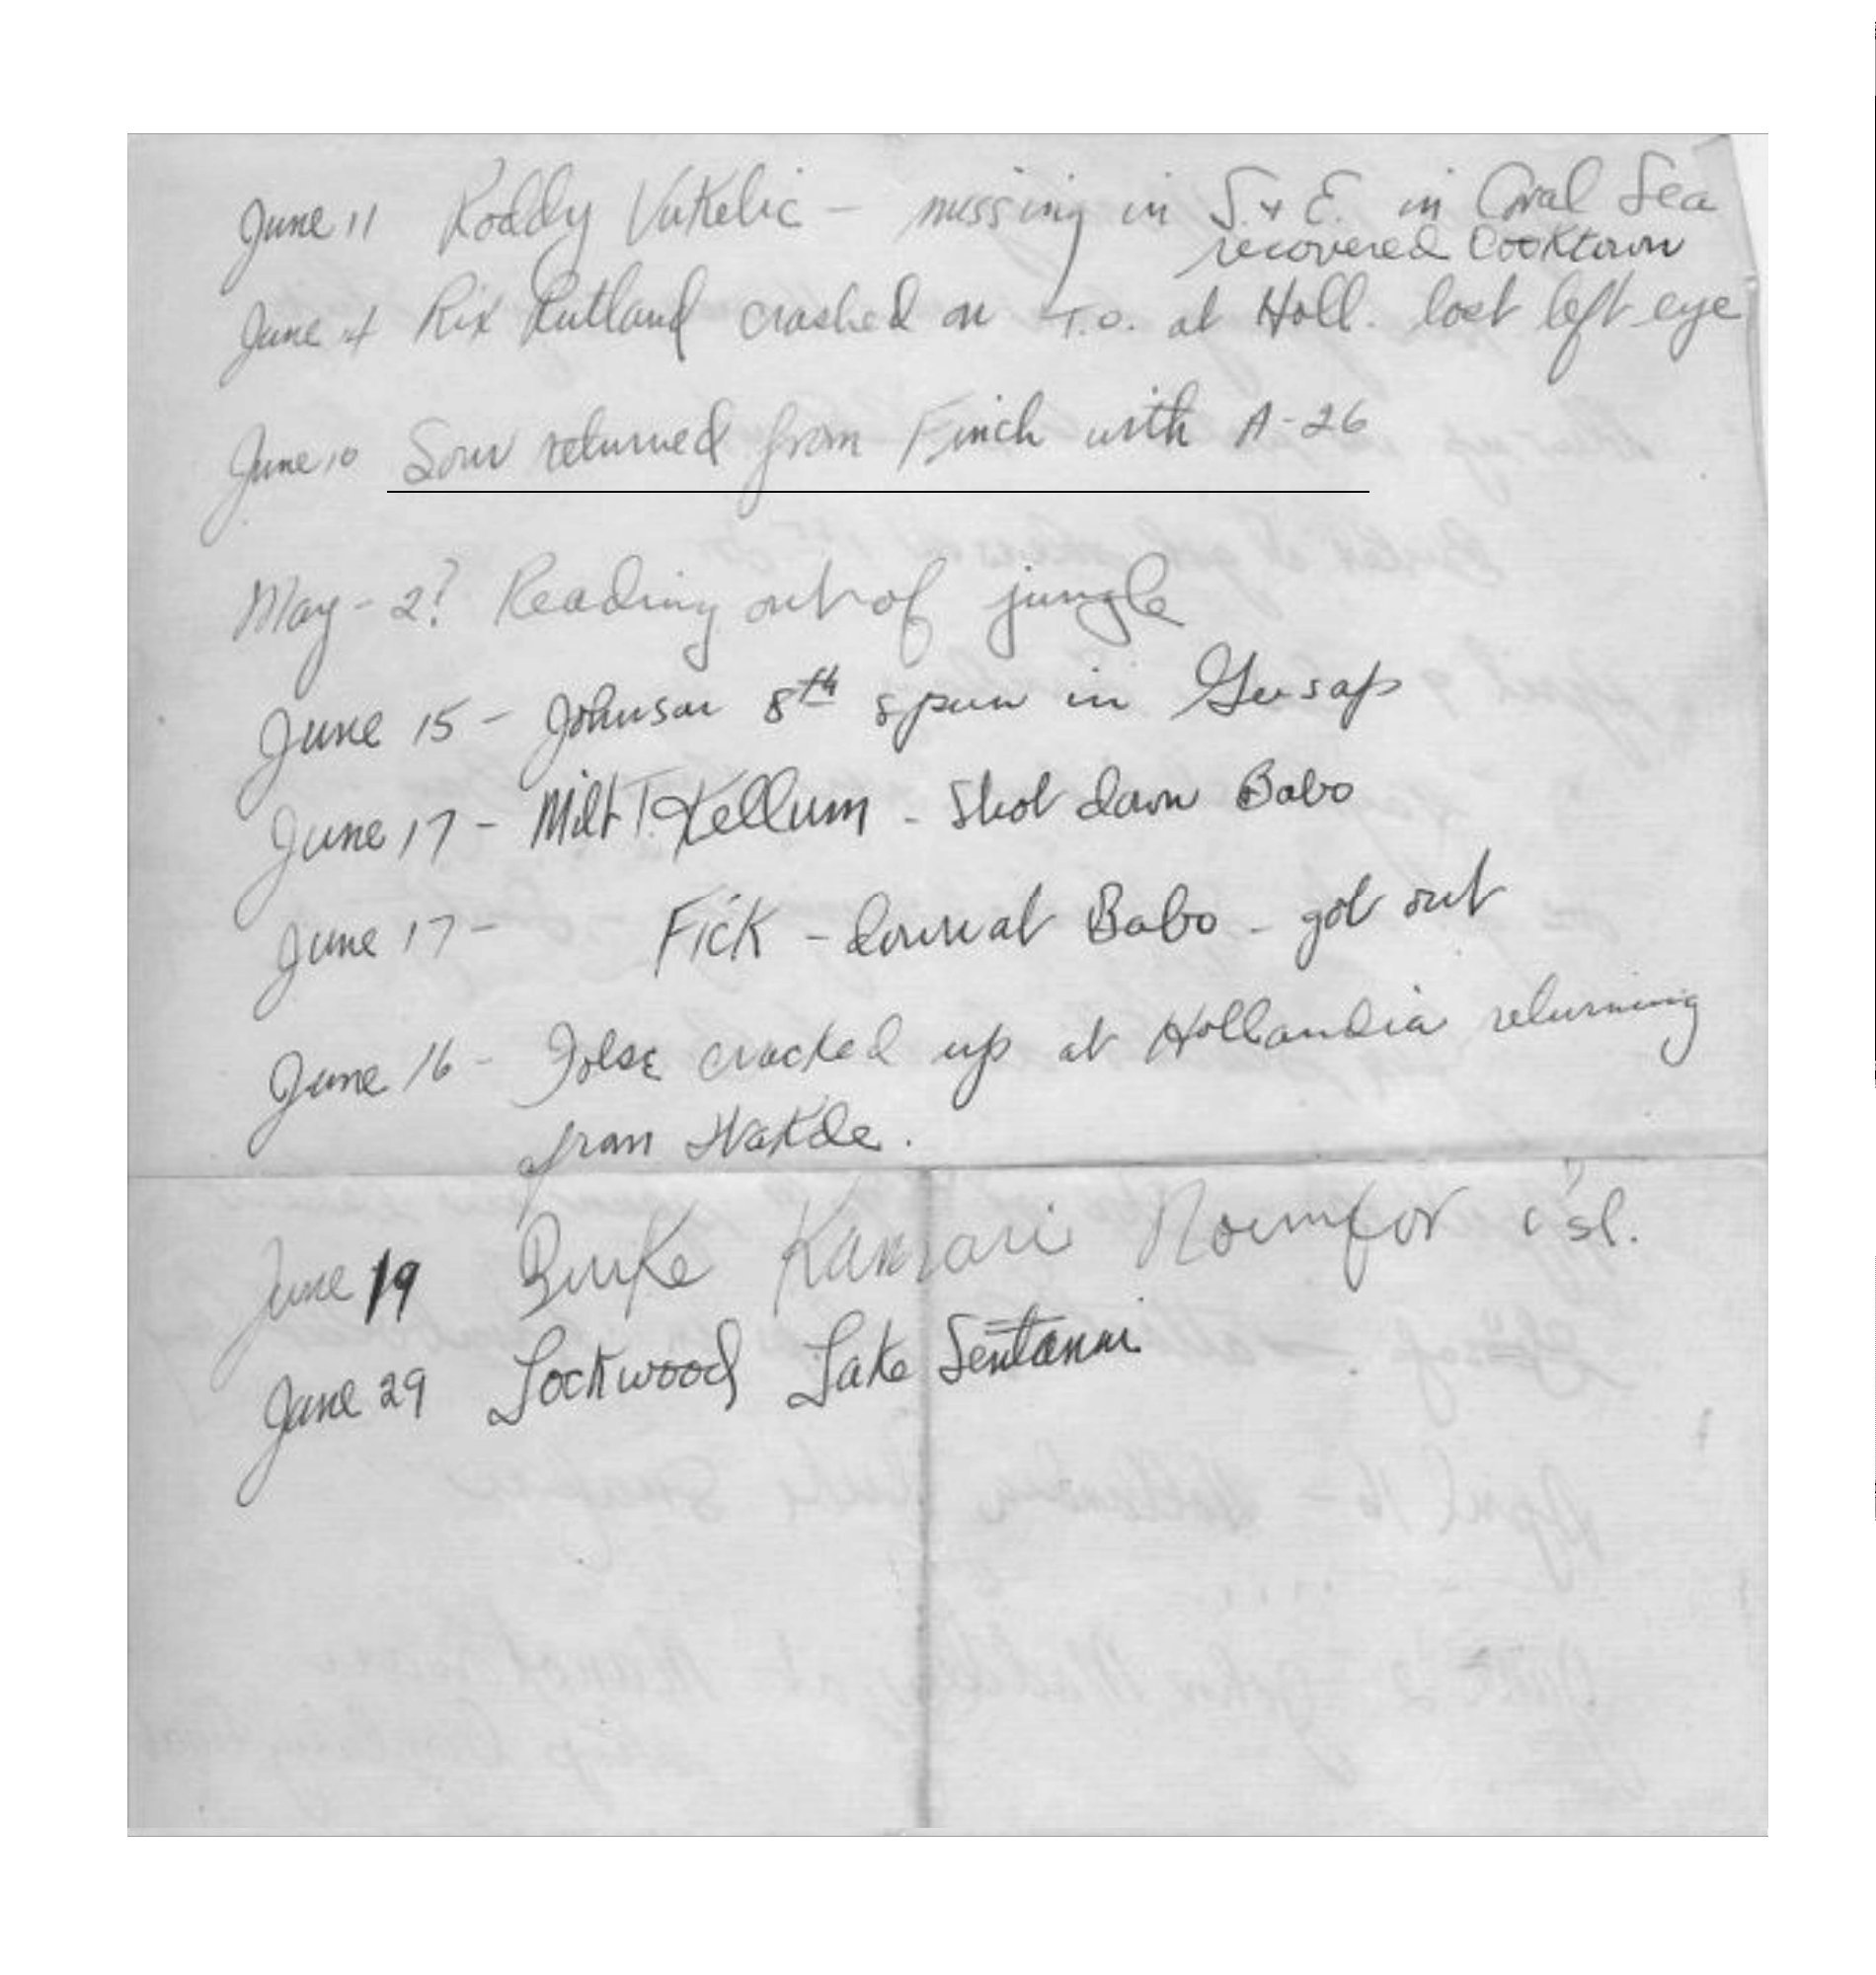 June 11 Roddy Vukelic - missing in S. + E. in Coral Sea
recovered Cooktown
June 4 Rix Rutland crashed on T.O. at Holl. lost left eye
June 10 returned from Finch with A-26
May - 2? Reading out of jungle
June 15 - Johnson 8th spun in Gusap
June 17 - Milt T. Kellum - Shot down Babo
June 17 - Fick - down at Babo - got out
June 16 - Folse cracked up at Hollandia returning
from Wakde.
June 19 Burke Kamrari Noemfor isl.
June 29 Lockwood Lake Sentanni